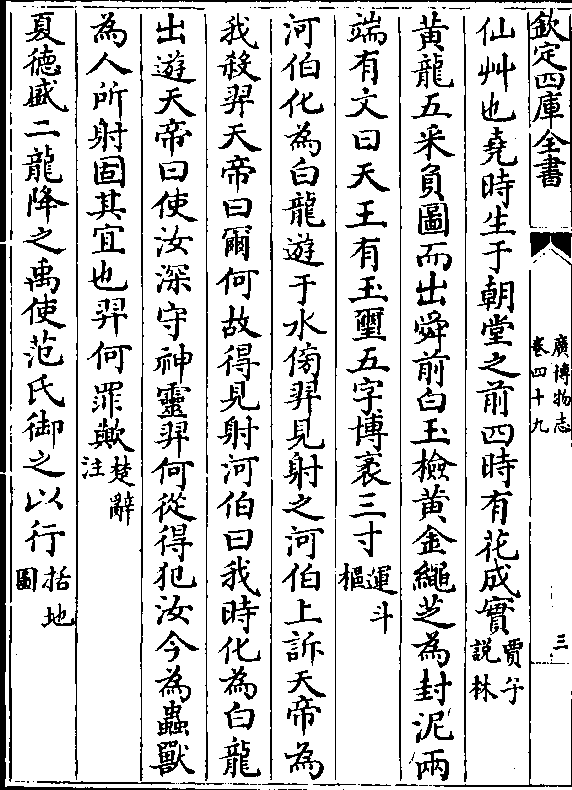 欽定四庫全書
廣博物志
卷四十九
三
仙艸也堯時生于朝堂之前四時有花成實賈子說林
黃龍五采負圖而出舜前白玉檢黃金繩芝為封泥兩
端有文曰天王有玉璽五字博袤三寸運斗樞
河伯化為白龍遊于水傍羿見射之河伯上訴天帝為
我殺羿天帝曰爾何故得見射河伯曰我時化為白龍
出遊天帝曰使汝深守神靈羿何從得犯汝今為蟲獸
為人所射固其宜也羿何罪歟楚辭注
夏德盛二龍降之禹使范氏御之以行括地圖